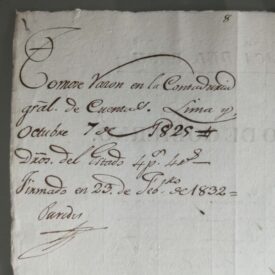 8
Tomose Razon en la Contaduria
gral. de Cuentas. Lima y
Octubre 7 de 1825
Dros. del Estado 4 ps. 4 rs
Firmado en 23 de Febro. de 1832 =
Paredes